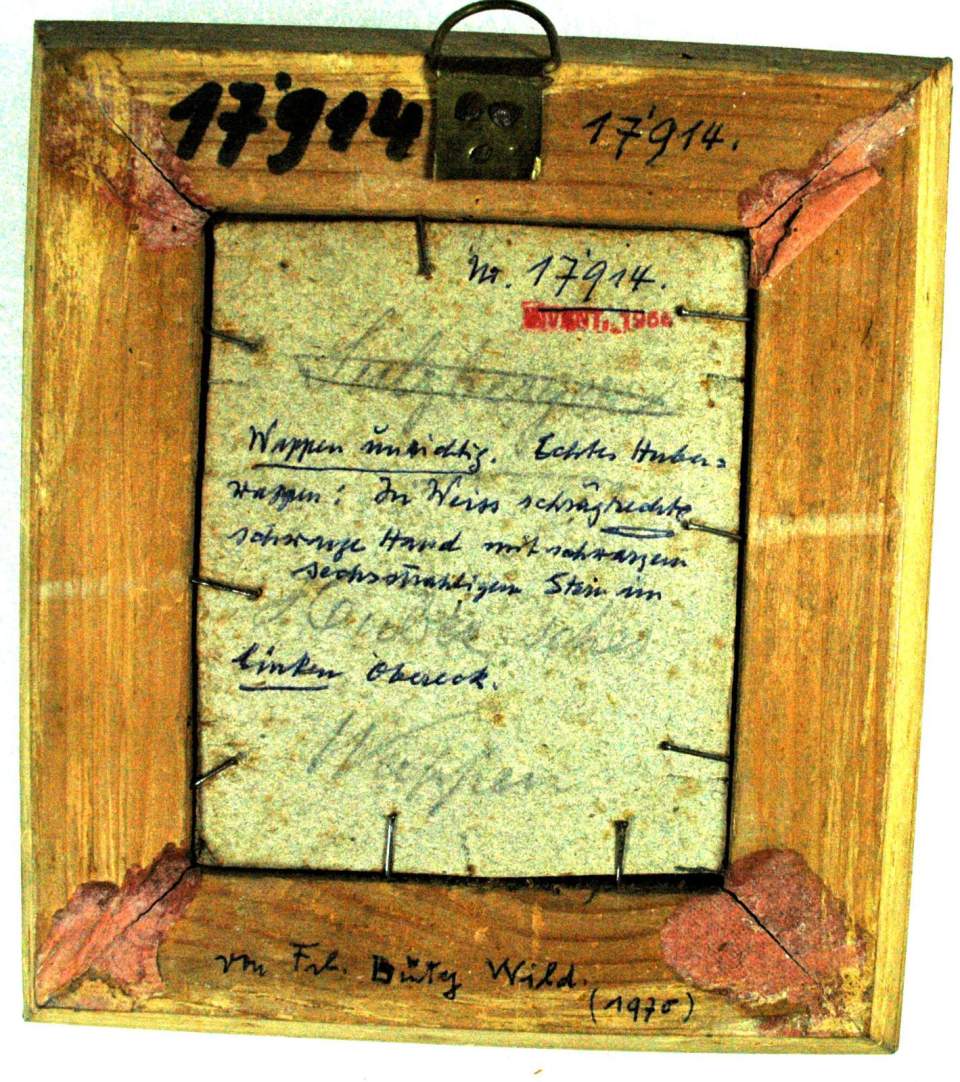 17'914
17'914.
Nr. 17'914.
INVENT. 1966
Wappen unrichtig. Echtes Huber=
wappen: In Weiss schrägrechte
schwarze Hand mit schwarzem
sechsstrahligem Stern im
sches
linken Obereck.
Wappen
von Frl. Düty Wild.
(1970)